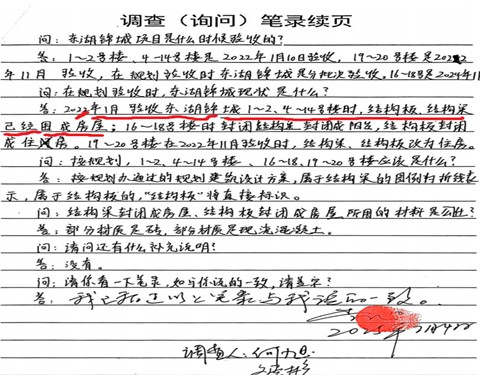 调查（询问）笔录续页
问：东湖锦城项目是什么时候验收的？
答：1~2号楼、4~14号楼是2022年1月10日验收，19~20号楼是2022
年11月验收，在规划验收时东湖锦城是分批次验收，16~18号是2024年11月
问：在规划验收时，东湖锦城现状是什么？
答：2022年1月验收东湖锦城1~2、4~14号楼时，结构板、结构梁
已经围成房屋；16~18号楼时封闭结构梁封闭成阳台，结构板封闭
成住房。19~20号楼在2022年11月验收时，结构梁、结构板改为住房。
问：按规划，1~2、4~14号楼、16~18、19~20号楼应该是什么？
答：按规划办通过的规划建筑设计方案，属于结构梁的图例为折线表
示，属于结构板的，“结构板”将直接标识。
问：结构梁封闭成房屋、结构板封闭成房屋所用的材料是什么？
答：部分材质是砖，部分材质是现浇混凝土。
问：请问还有什么补充说明？
答：没有。
问：请你看一下笔录，如与你说的一致，请签字？
答：我已看过以上笔录与我说的一致。
2025年7月4日
调查人：何